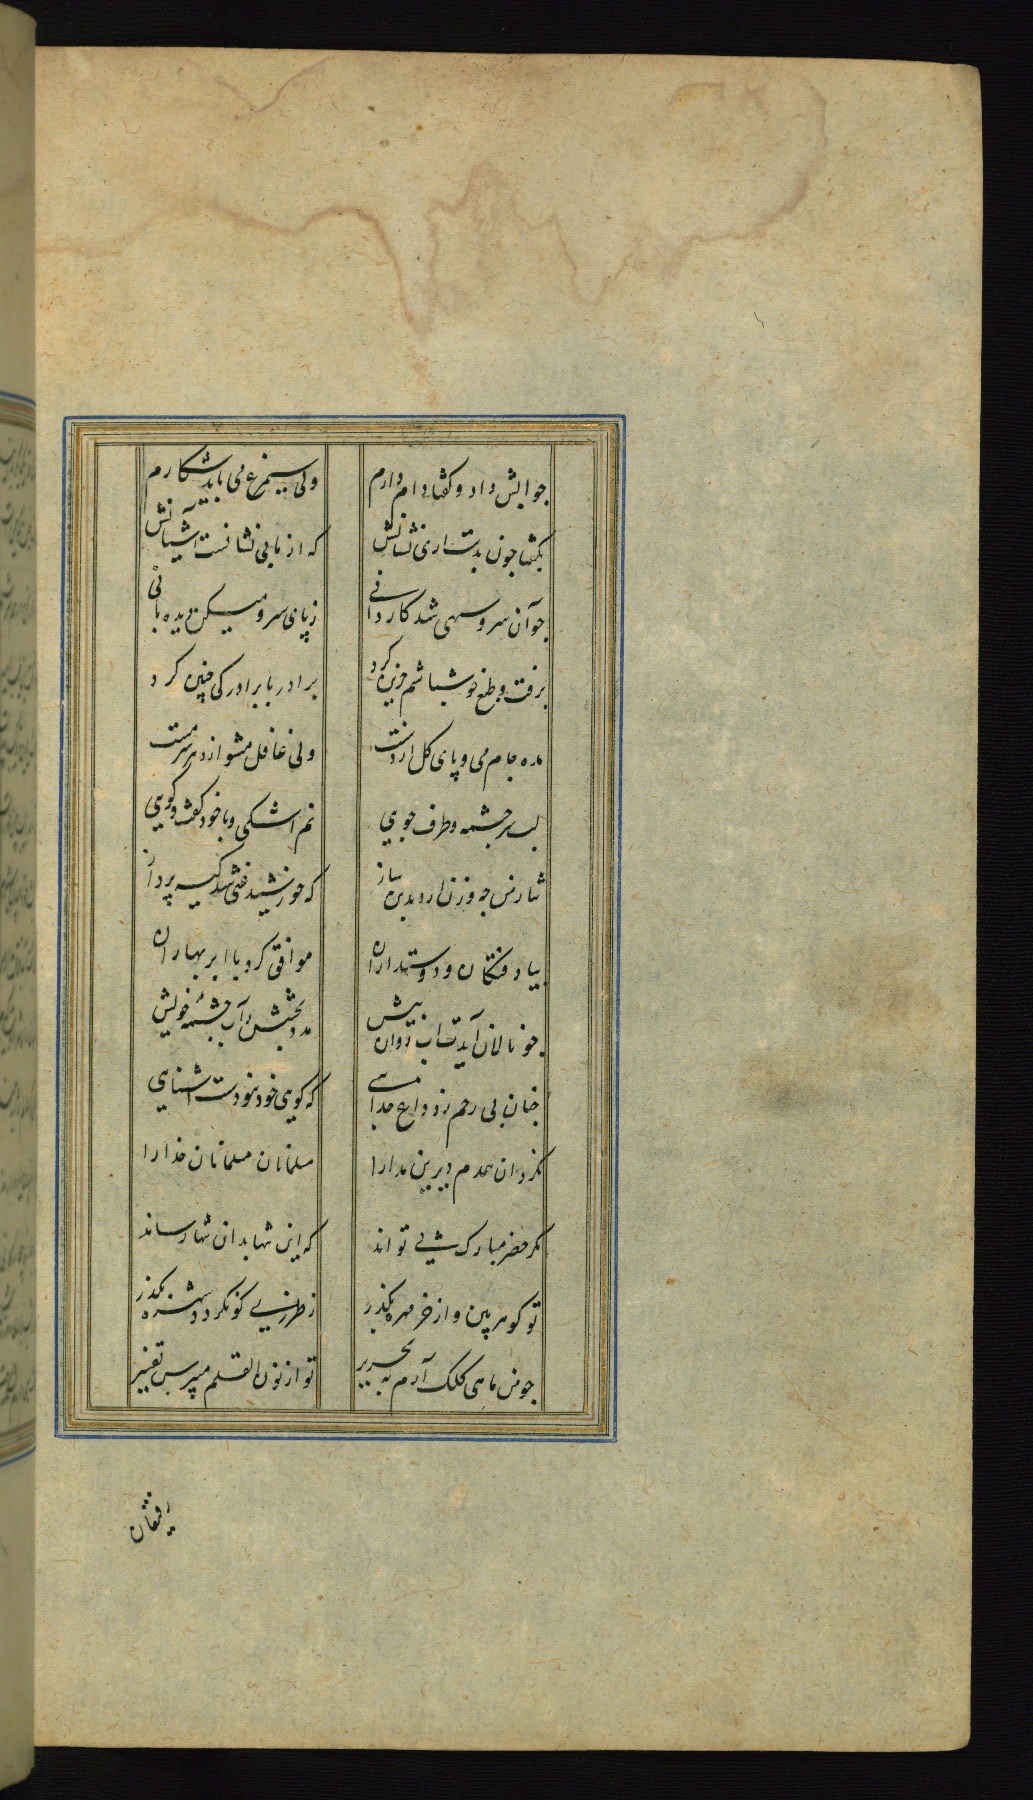 جوابش داد و کفتا دام دارم ولی سیمرغ می باید شکارم
بکفتا چون بدست اری نشانش که از ما بی نشانست آشیانش
چو آن سرو سهی شد کاردانی ز پای سرو میکن دیده بانی
برفت و طبع خوشباشم حزین کرد برادر با برادر کی چنین کرد
مده جام می و پای کل از دست ولی غافل مشو از دهر سرمست
لب سر چشمه و طرف جویی نم اشکی و با خود کفت و کویی
نثار من چه وزن ارد بدین ساز که خورشید غنی شد کیسه پرداز
بیاد رفتکان و دوستداران موافق کرد با ابر بهاران
چو نالان آیدت آب روان پیش مدد بخشش ز آب چشمهٔ خویش
چنان بی رحم زد داغ جدایی که کویی خود نبودست اشنایی
نکرد ان همدم دیرین مدارا مسلمانان مسلمانان خدا را
مکر خضر مبارک پی تواند که این تنها بدان تنها رساند
تو کوهر بین و از خر مهره بکذر ز طرزی کو نکردد شهره بکذر
چو من ماهی کلک آرم به تحریر تو از نون القلم میپرس تفسیر
رفیقان